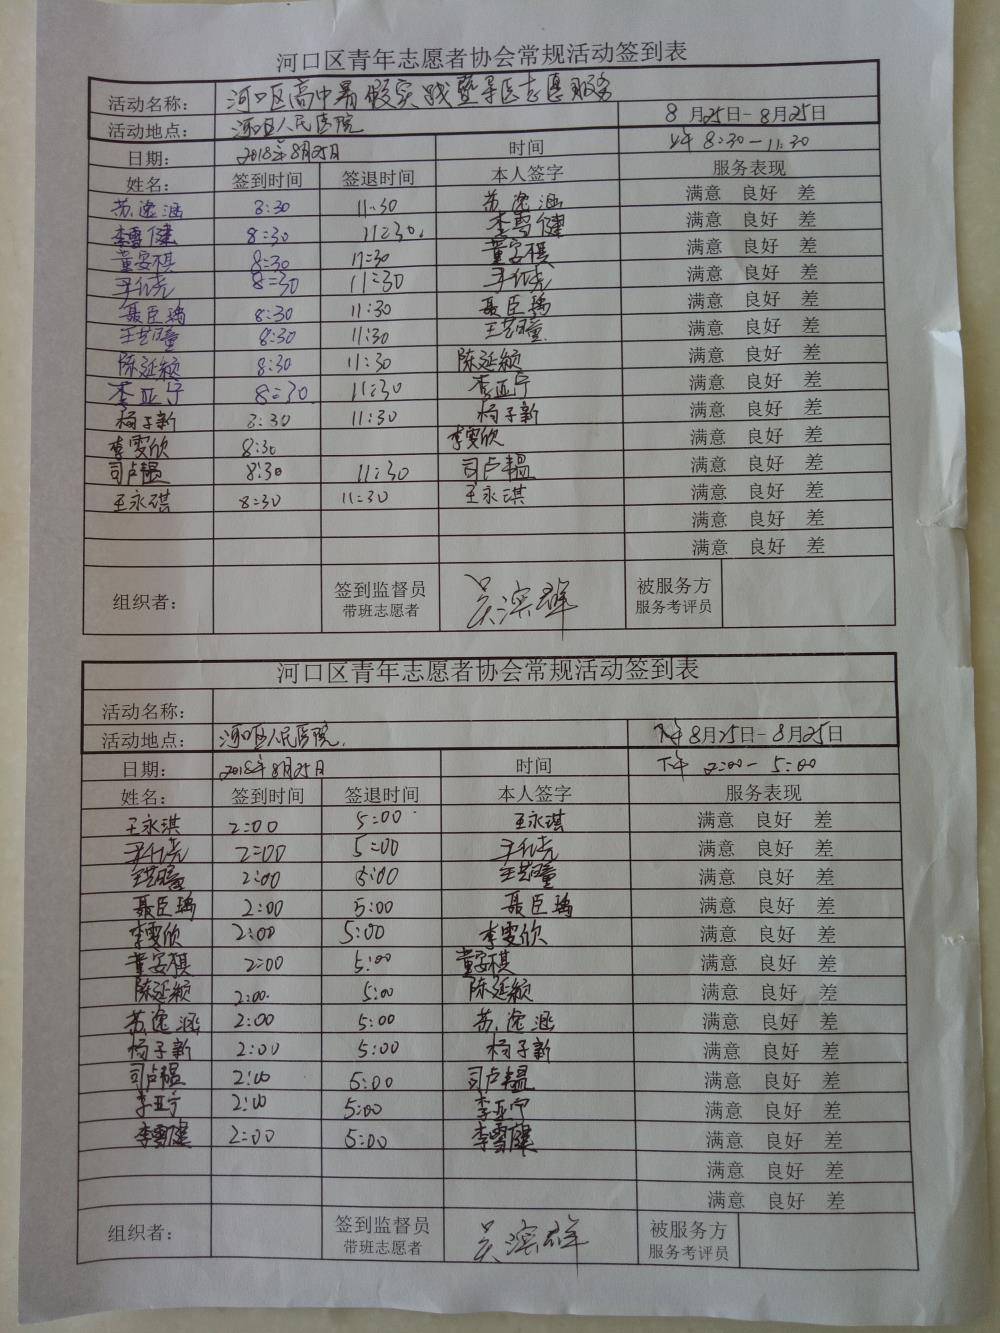 河口区青年志愿者协会常规活动签到表
活动名称： 河口区高中暑假实践暨导医志愿服务
活动地点： 河口区人民医院 8月25日-8月25日
日期： 2018年8月25日 时间 上午 8:30-11:30
姓名： 签到时间 签退时间 本人签字 服务表现
苏逸涵 8:30 11:30 苏逸涵 满意 良好 差
李雪健 8:30 11:30. 李雪健 满意 良好 差
董安祺 8:30 11:30 董安祺 满意 良好 差
8:30 11:30 满意 良好 差
聂臣瑀 8:30 11:30 聂臣瑀 满意 良好 差
王艺瞳 8:30 11:30 王艺瞳 满意 良好 差
陈延颖 8:30 11:30 陈延颖 满意 良好 差
李亚宁 8:30 11:30 李亚宁 满意 良好 差
杨子新 8:30 11:30 杨子新 满意 良好 差
李雯欣 8:30 李雯欣 满意 良好 差
司卢韫 8:30 11:30 司卢韫 满意 良好 差
王永琪 8:30 11:30 王永琪 满意 良好 差
满意 良好 差
满意 良好 差
组织者： 签到监督员 带班志愿者 吴滨雄 被服务方 服务考评员
河口区青年志愿者协会常规活动签到表
活动名称：
活动地点： 河口区人民医院. 下午 8月25日-8月25日
日期： 2018年8月25日 时间 下午 2:00-5:00
姓名： 签到时间 签退时间 本人签字 服务表现
王永琪 2:00 5:00 王永琪 满意 良好 差
2:00 5:00 满意 良好 差
王艺瞳 2:00 5:00 王艺瞳 满意 良好 差
聂臣瑀 2:00 5:00 聂臣瑀 满意 良好 差
李雯欣 2:00 5:00 李雯欣 满意 良好 差
董安祺 2:00 5:00 董安祺 满意 良好 差
陈延颖 2:00. 5:00 陈延颖 满意 良好 差
苏逸涵 2:00 5:00 苏逸涵 满意 良好 差
杨子新 2:00 5:00 杨子新 满意 良好 差
司卢韫 2:00 5:00 司卢韫 满意 良好 差
李亚宁 2:00 5:00 李亚宁 满意 良好 差
李雪健 2:00 5:00 李雪健 满意 良好 差
满意 良好 差
满意 良好 差
组织者： 签到监督员 带班志愿者 吴滨雄 被服务方 服务考评员